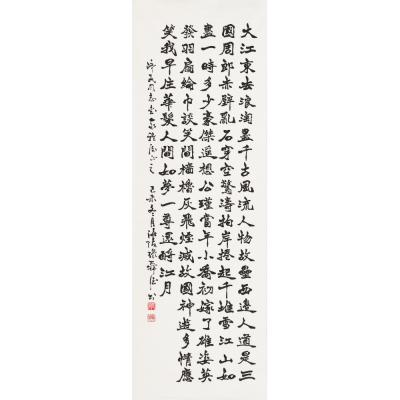 大江東去浪淘盡千古風流人物故壘西邊人道是三
國周郎赤壁亂石穿空驚濤拍岸捲起千堆雪江山如
畫一時多少豪傑遙想公瑾當年小喬初嫁了雄姿英
發羽扇綸巾談笑間檣櫓灰飛煙滅故國神遊多情應
笑我早生華髮人間如夢一尊還酹江月
同志 己未冬月